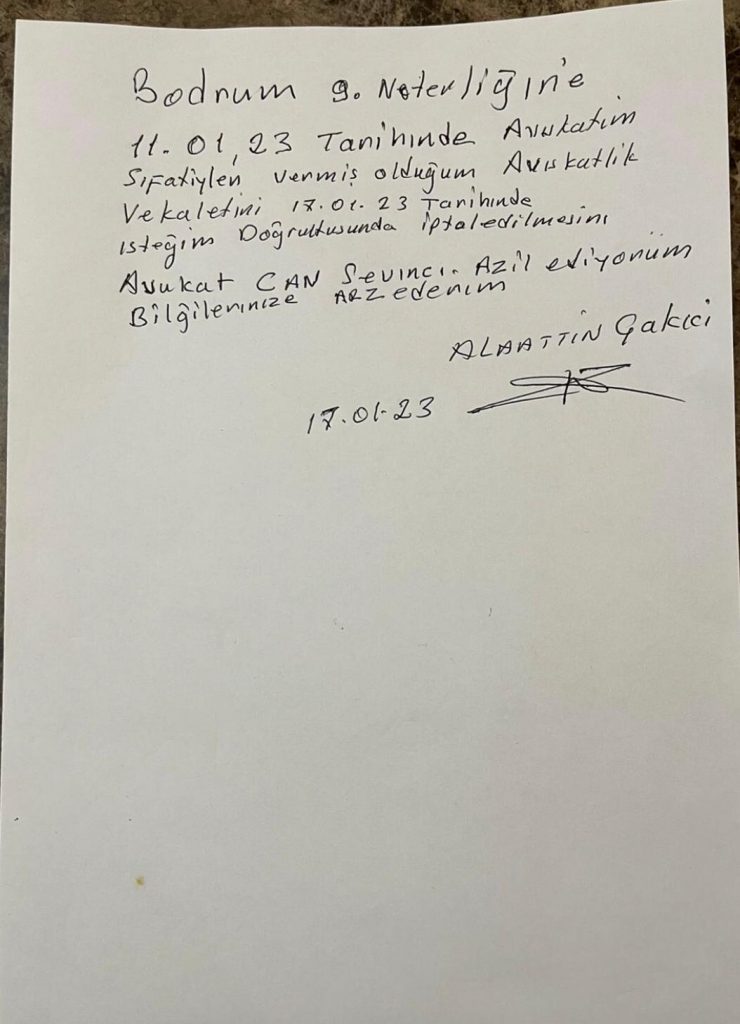 Bodrum 9. Noterliğin'e
11.01,23 Tarihinde Avukatım
Sıfatiylen vermiş olduğum Avukatlik
Vekaletini 17.01.23 Tarihinde
isteğim Doğrultusunda iptaledilmesini
Avukat CAN Sevinci. Azil ediyorum
Bilğilerinize ARZ ederim
ALAATTİN Çakici
17.01.23